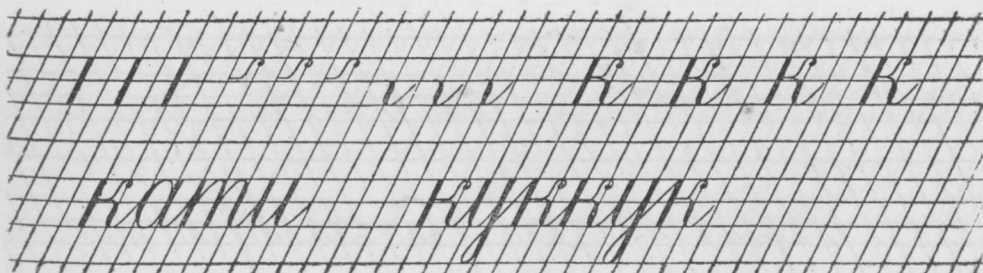 к к к к
кати куккук